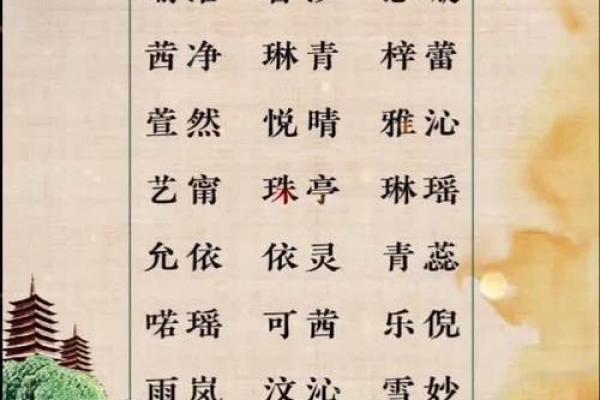 茜净 琳青 梓蕾
萱然 悦晴 雅沁
艺甯 珠亭 琳瑶
允依 依灵 青蕊
喏瑶 可茜 乐倪
雨岚 汶沁 雪妙